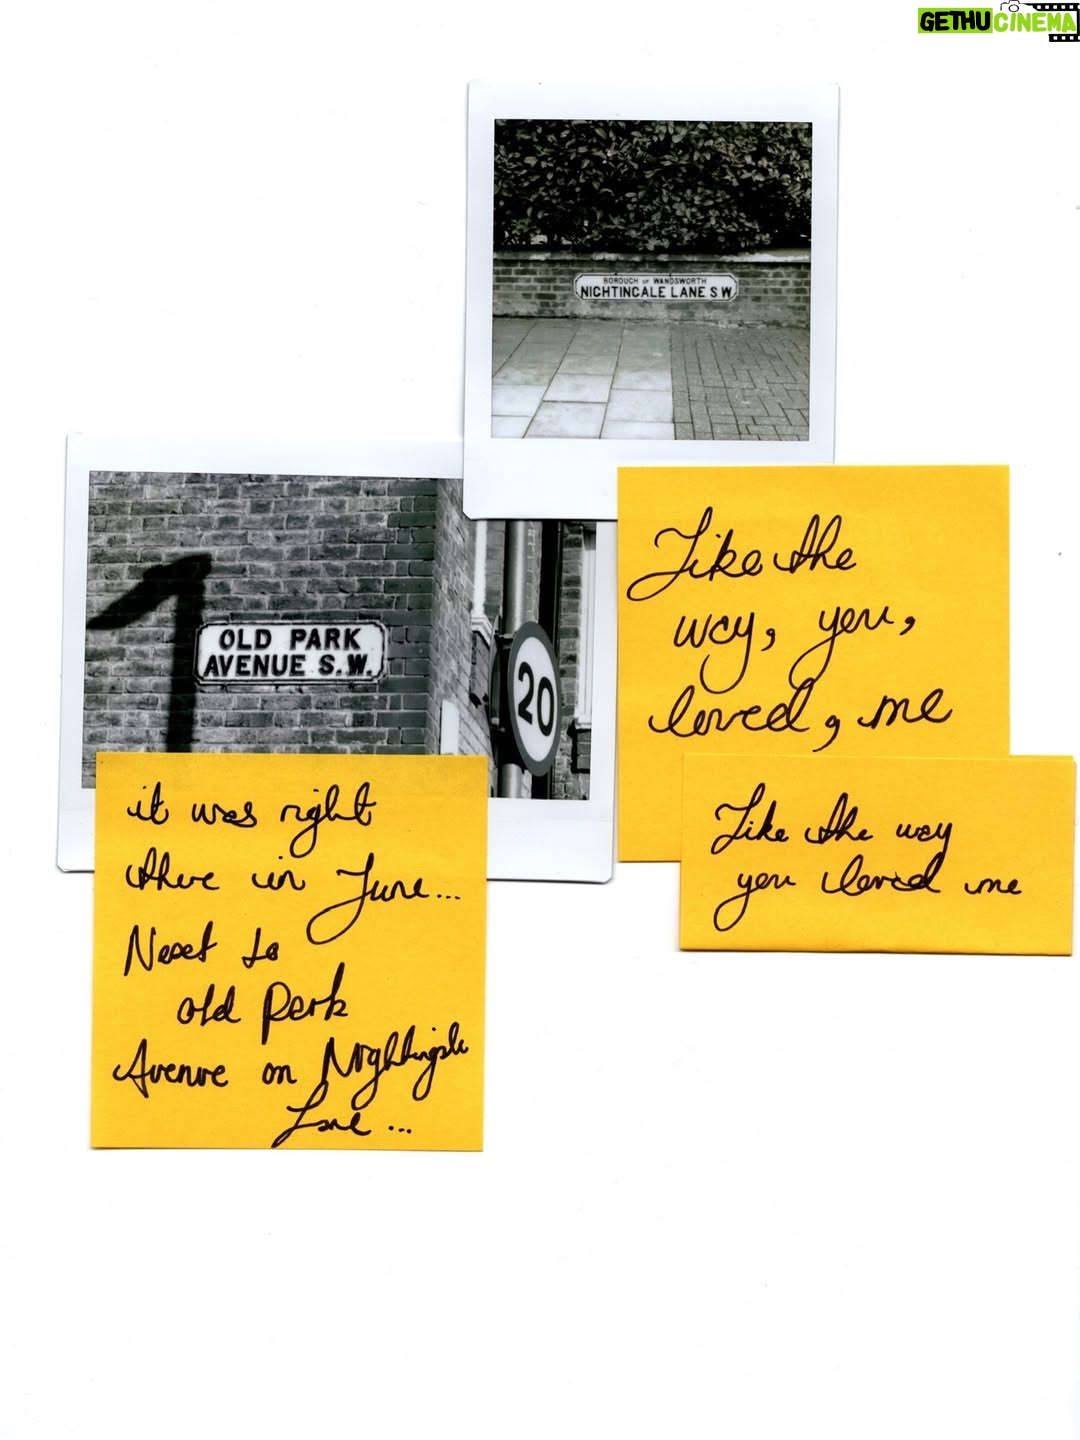 GETHUCINEMA
BOROUGH OF WANDSWORTH
NIGHTINGALE LANE S W
OLD PARK
AVENUE S.W.
20
Like the
way, you,
loved, me
Like the way
you loved me
it was right
there in June...
Next to
old Park
Avenue on Nightingale
Lane...